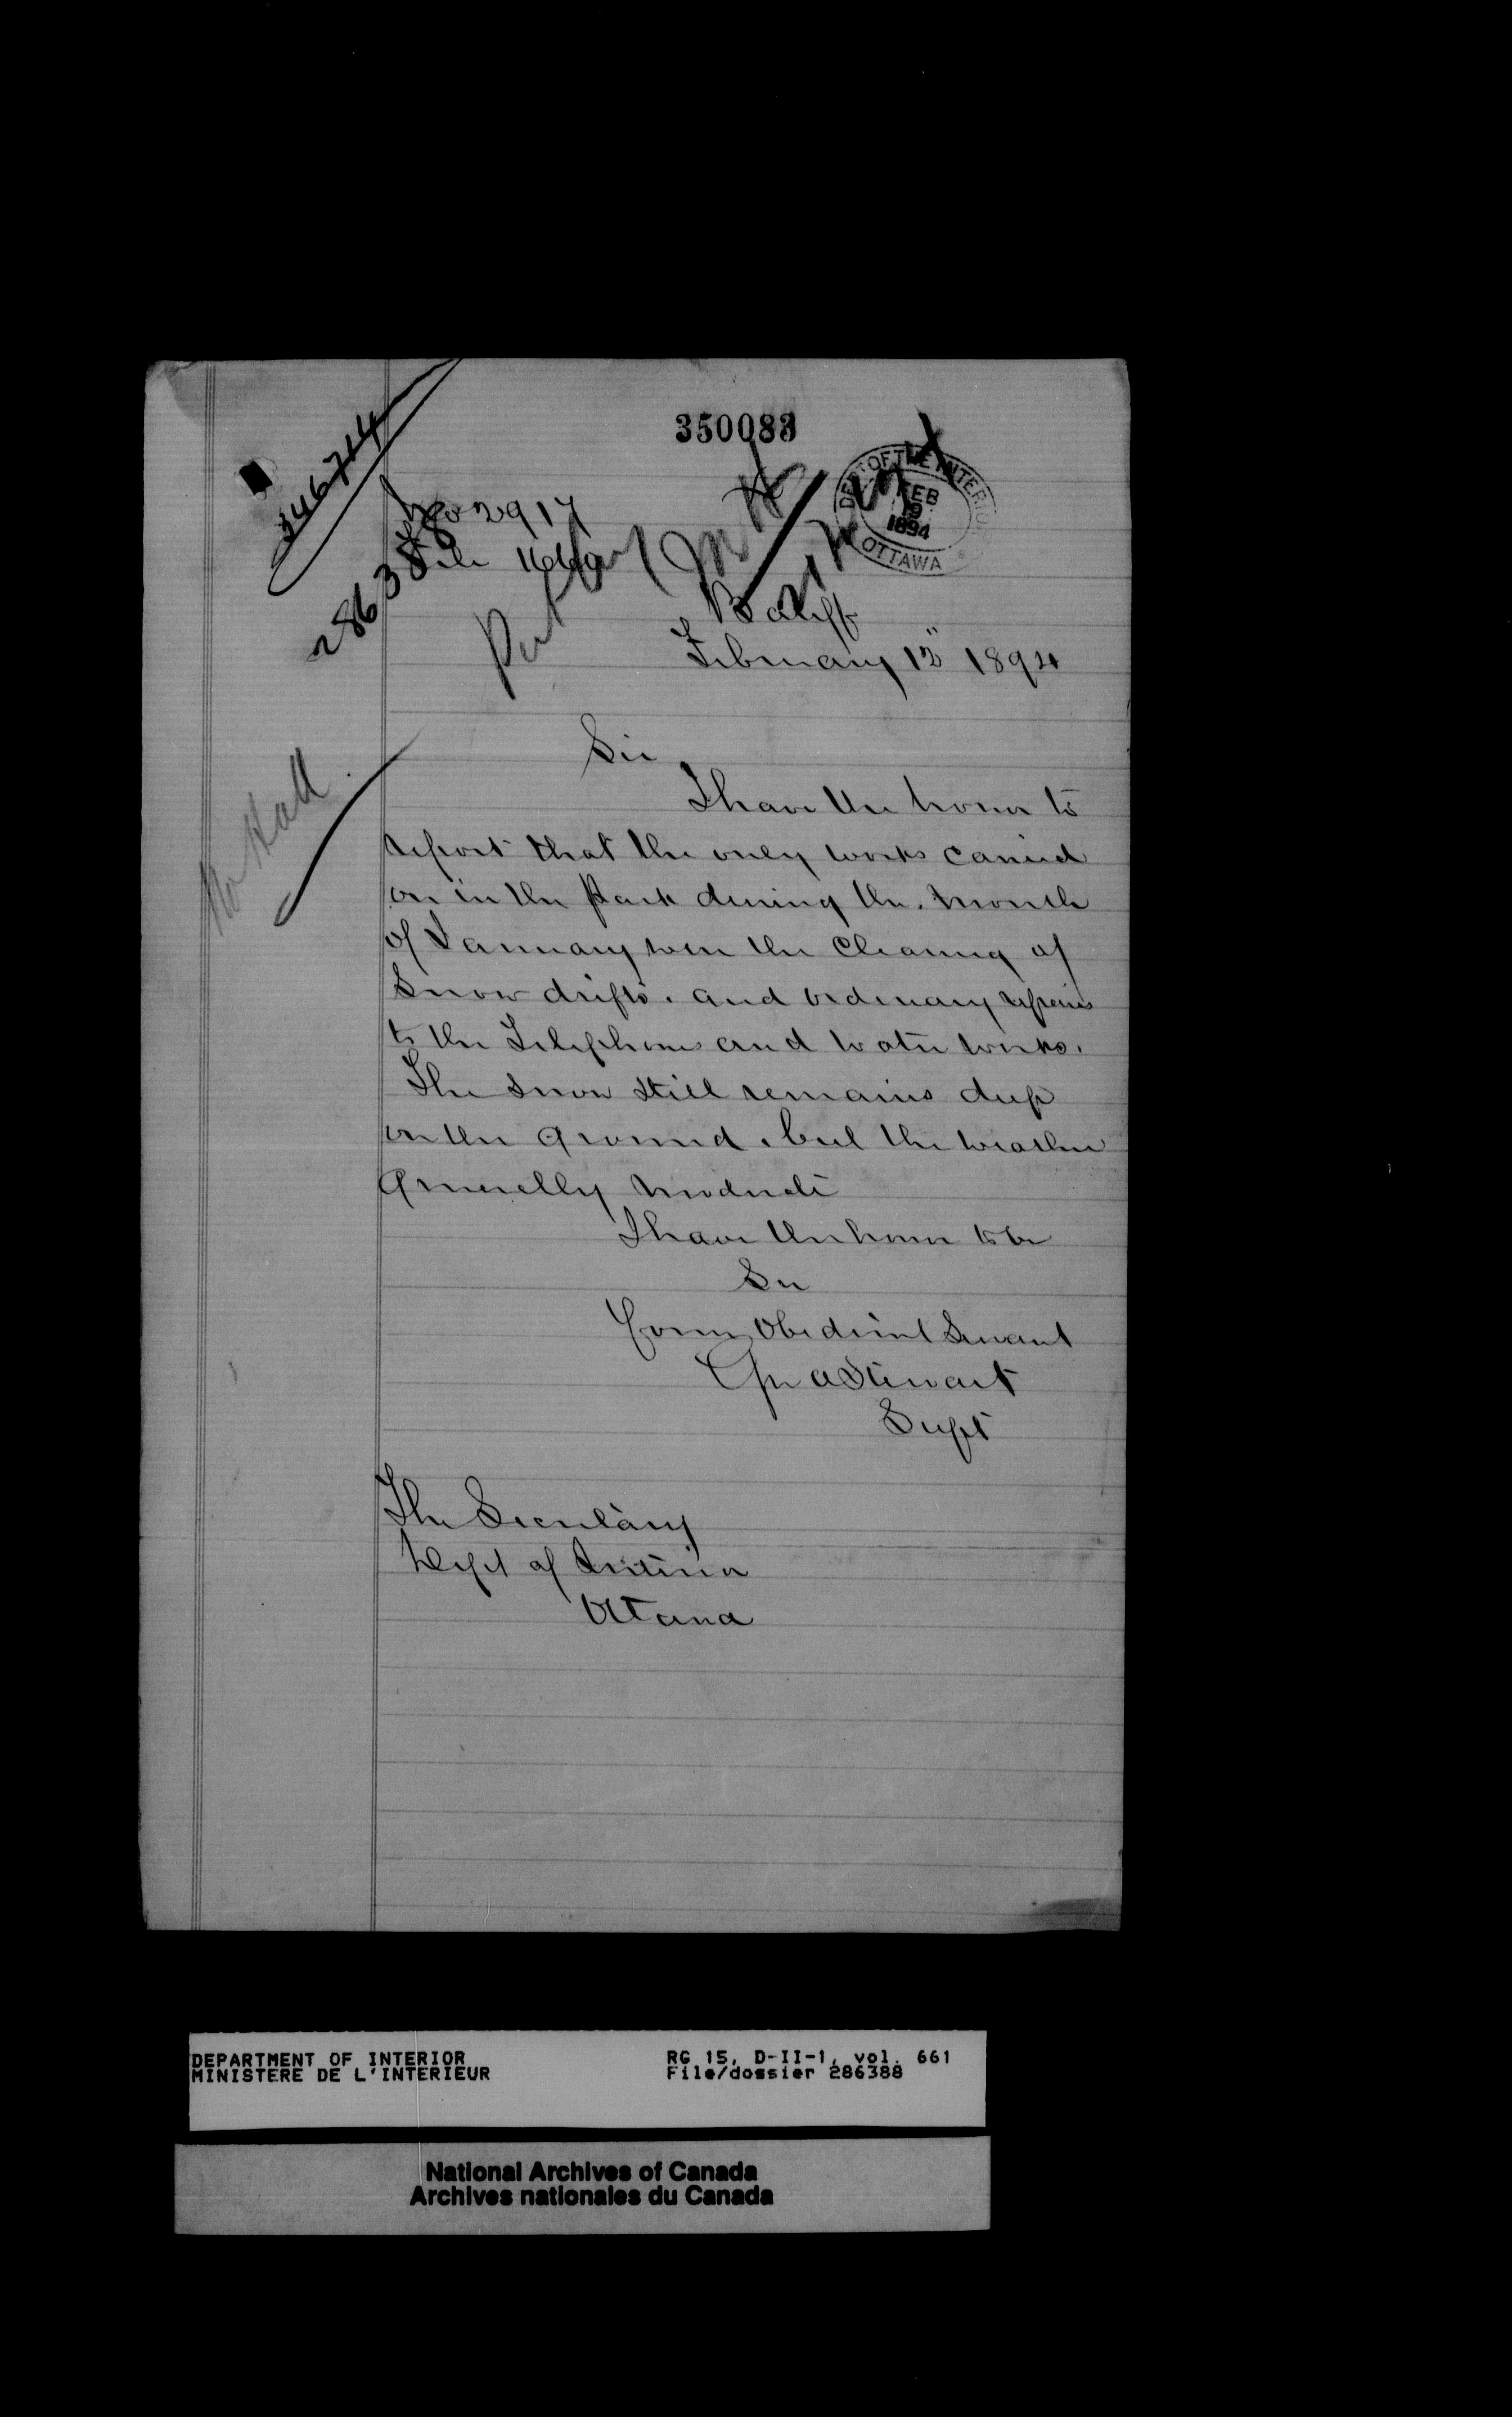 350083
346714
No 2917
File
286388
DEPT OF THE INTERIOR
FEB
19
1894
OTTAWA
Banff
February 13" 1894
Mr Hall
Sir
I have the honor to
report that the only works carried
on in the Park during the month
of January were the clearing of
Snow drifts. and ordinary repairs
to the Telephone and water works.
The Snow Still remains deep
on the Ground. but the weather
Generally moderate
I have the honor to be
Sir
Your Obedient Servant
Geo A Stewart
Supt
The Secretary
Dept of Interior
Ottawa
DEPARTMENT OF INTERIOR
MINISTERE DE L'INTERIEUR
RG 15, D-II-1, vol. 661
File/dossier 286388
National Archives of Canada
Archives nationales du Canada